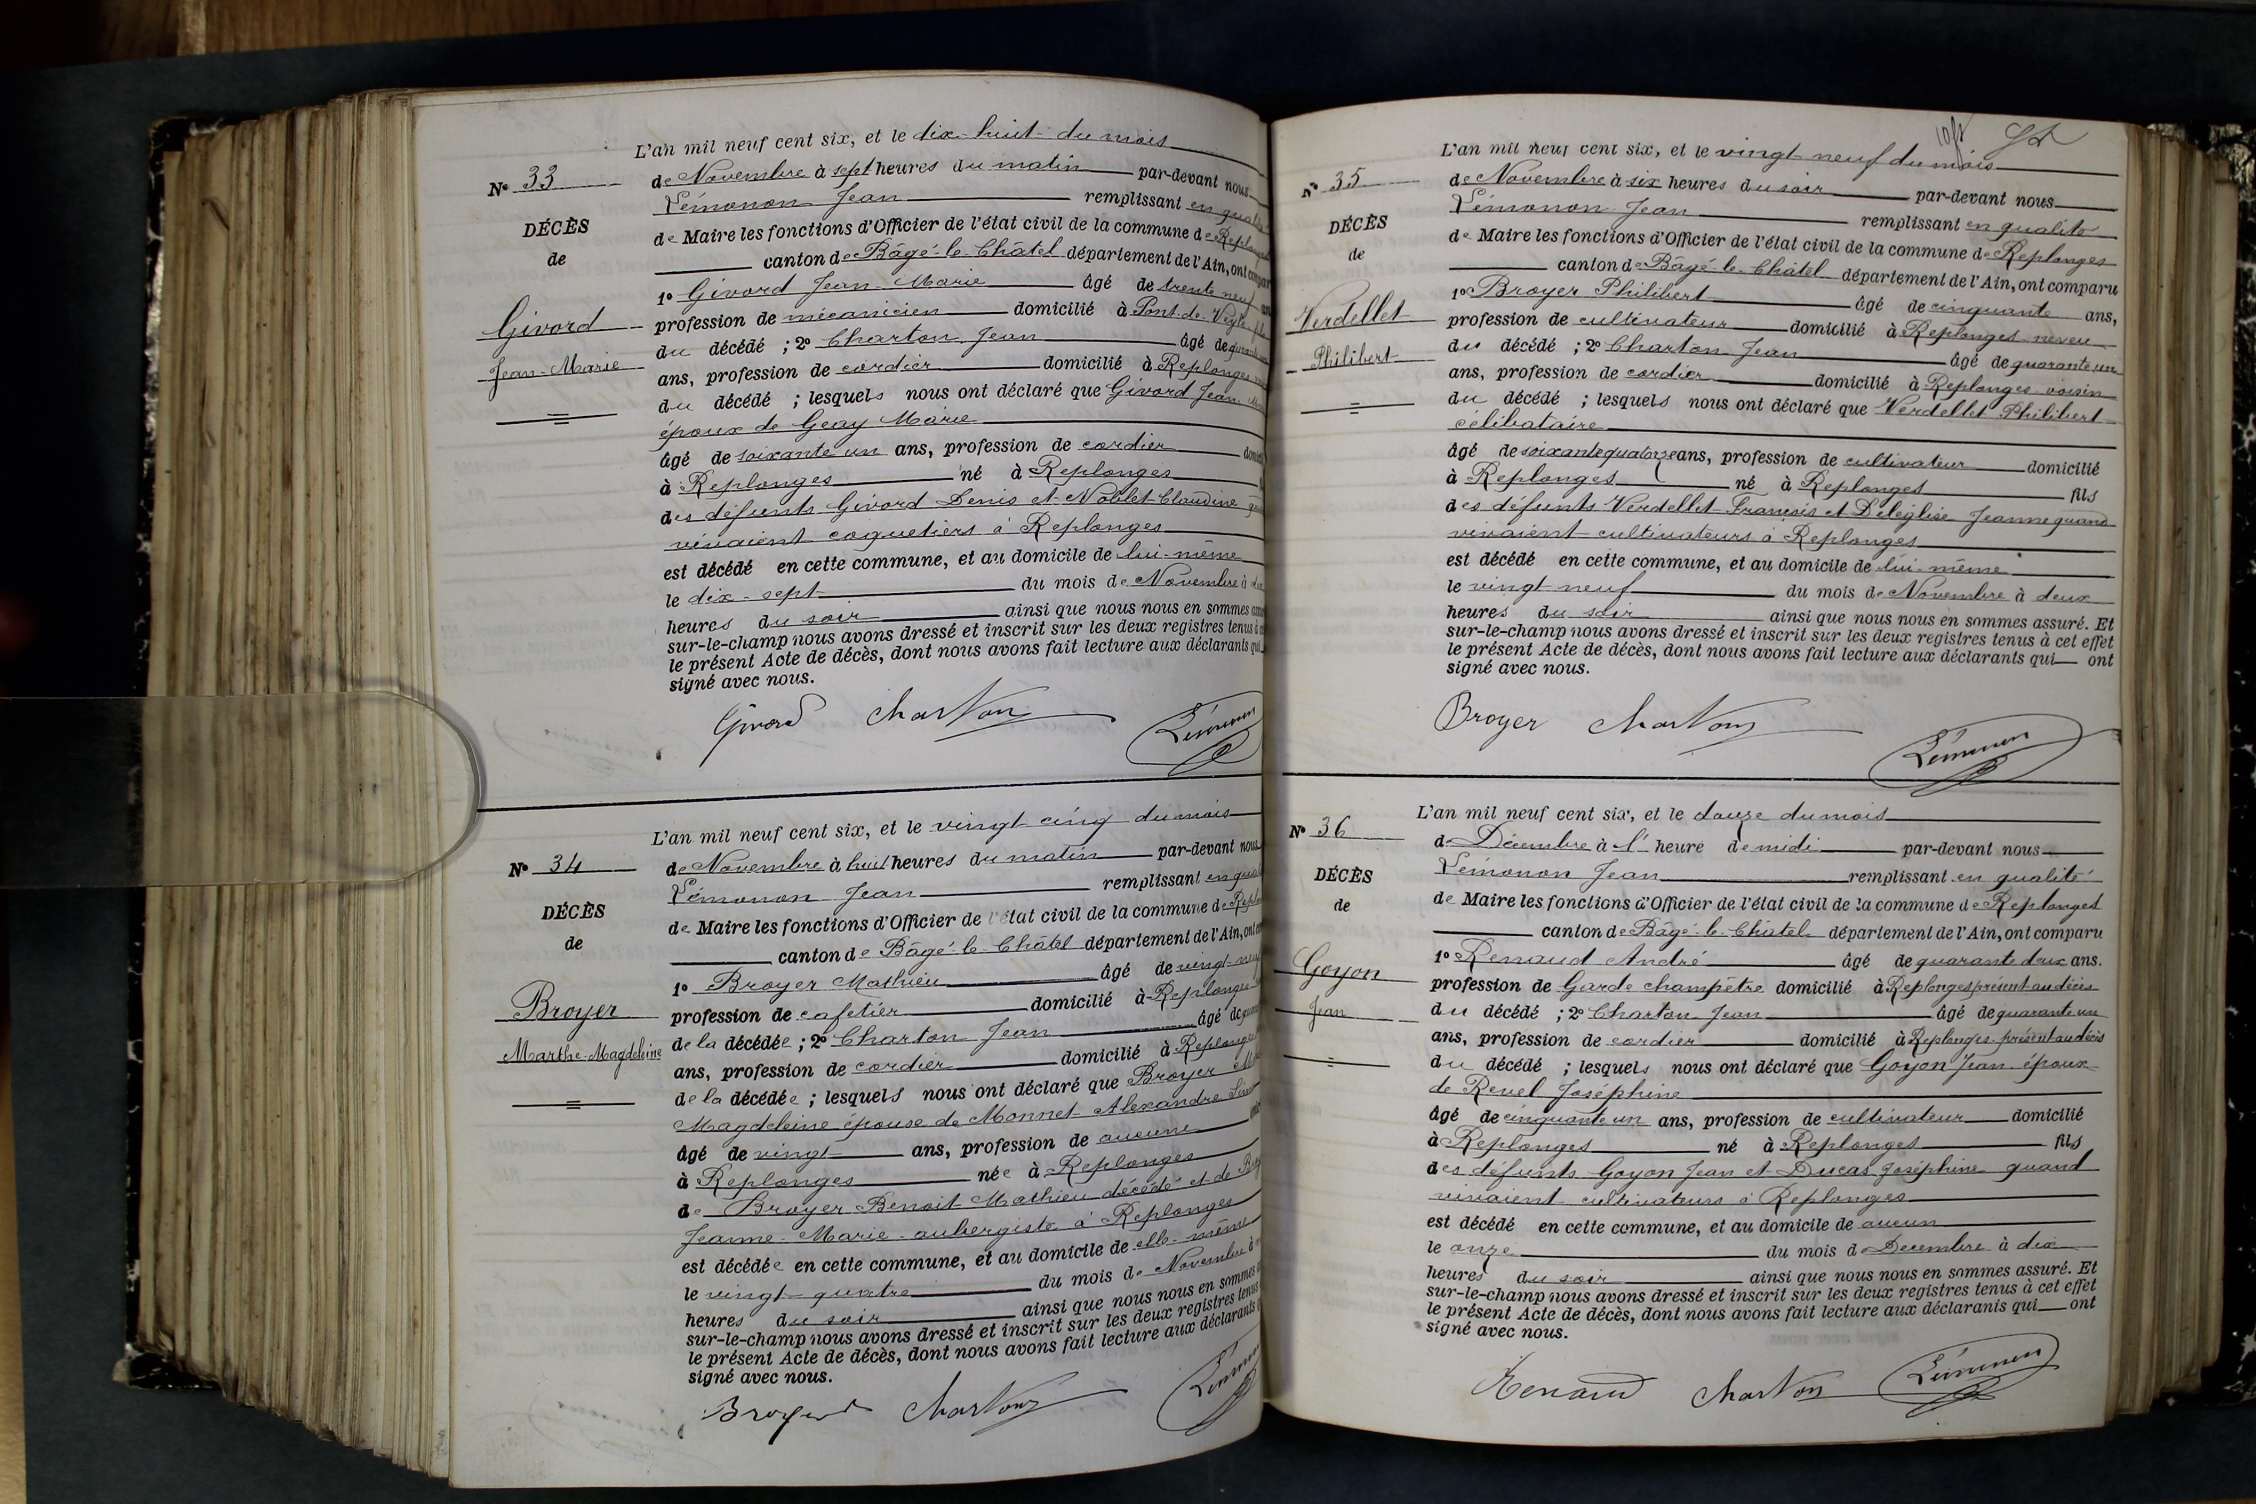 N° 33
DÉCÈS
de
Givord
Jean-Marie
L'an mil neuf cent six, et le dix-huit du mois
de Novembre à sept heures du matin par-devant nous
Lémonon Jean remplissant en qualité
de Maire les fonctions d'Officier de l'état civil de la commune de Replonges
canton de Bâgé-le-Châtel département de l'Ain, ont
1° Givord Jean-Marie âgé de trente neuf
profession de mécanicien domicilié à Pont-de-Veyle
du décédé ; 2° Charton Jean âgé de
ans, profession de cordier domicilié à Replonges
du décédé ; lesquels nous ont déclaré que Givord Jean
époux de Geay Marie
âgé de soixante un ans, profession de cordier
à Replonges né à Replonges
des défunts Givord Denis et Noblet Claudine
vivaient coquetiers à Replonges
est décédé en cette commune, et au domicile de lui-même
le dix-sept du mois de Novembre à
heures du soir ainsi que nous nous en sommes
sur-le-champ nous avons dressé et inscrit sur les deux registres tenus à
le présent Acte de décès, dont nous avons fait lecture aux déclarants qui
signé avec nous.
Givord Charton Lémonon
N° 34
DÉCÈS
de
Broyer
Marthe-Magdeleine
L'an mil neuf cent six, et le vingt cinq du mois
de Novembre à huit heures du matin par-devant nous
Lémonon Jean remplissant en
de Maire les fonctions d'Officier de l'état civil de la commune de
canton de Bâgé-le-Châtel département de l'Ain, ont
1° Broyer Mathieu âgé de vingt-neuf
profession de cafetier domicilié à Replonges
de la décédée ; 2° Charton Jean âgé de
ans, profession de cordier domicilié à Replonges
de la décédée ; lesquels nous ont déclaré que Broyer
Magdeleine épouse de Monnet Alexandre
âgé de vingt ans, profession de aucune
à Replonges née à Replonges
de Broyer Benoit Mathieu décédé et de
Jeanne-Marie aubergiste à Replonges
est décédée en cette commune, et au domicile de elle-même
le vingt-quatre du mois de Novembre à
heures du soir ainsi que nous nous en sommes
sur-le-champ nous avons dressé et inscrit sur les deux registres tenus
le présent Acte de décès, dont nous avons fait lecture aux déclarants
signé avec nous.
Broyer Charton Lémonon
N° 35
DÉCÈS
de
Verdellet
Philibert
L'an mil neuf cent six, et le vingt-neuf du mois
de Novembre à six heures du soir par-devant nous
Lémonon Jean remplissant en qualité
de Maire les fonctions d'Officier de l'état civil de la commune de Replonges
canton de Bâgé-le-Châtel département de l'Ain, ont comparu
1° Broyer Philibert âgé de cinquante ans,
profession de cultivateur domicilié à Replonges neveu
du décédé ; 2° Charton Jean âgé de quarante un
ans, profession de cordier domicilié à Replonges voisin
du décédé ; lesquels nous ont déclaré que Verdellet Philibert
célibataire
âgé de soixante quatorze ans, profession de cultivateur domicilié
à Replonges né à Replonges fils
des défunts Verdellet François et Deléglise Jeanne quand
vivaient cultivateurs à Replonges
est décédé en cette commune, et au domicile de lui-même
le vingt-neuf du mois de Novembre à deux
heures du soir ainsi que nous nous en sommes assuré. Et
sur-le-champ nous avons dressé et inscrit sur les deux registres tenus à cet effet
le présent Acte de décès, dont nous avons fait lecture aux déclarants qui ont
signé avec nous.
Broyer Charton Lémonon
N° 36
DÉCÈS
de
Goyon
Jean
L'an mil neuf cent six, et le douze du mois
de Décembre à 1h heure de midi par-devant nous
Lémonon Jean remplissant en qualité
de Maire les fonctions d'Officier de l'état civil de la commune de Replonges
canton de Bâgé-le-Châtel département de l'Ain, ont comparu
1° Renaud André âgé de quarante deux ans.
profession de Garde champêtre domicilié à Replonges présent au décès
du décédé ; 2° Charton Jean âgé de quarante un
ans, profession de cordier domicilié à Replonges présent au décès
du décédé ; lesquels nous ont déclaré que Goyon Jean époux
de Revel Joséphine
âgé de cinquante un ans, profession de cultivateur domicilié
à Replonges né à Replonges fils
des défunts Goyon Jean et Ducas Joséphine quand
vivaient cultivateurs à Replonges
est décédé en cette commune, et au domicile de aucun
le onze du mois de Decembre à dix
heures du soir ainsi que nous nous en sommes assuré. Et
sur-le-champ nous avons dressé et inscrit sur les deux registres tenus à cet effet
le présent Acte de décès, dont nous avons fait lecture aux déclarants qui ont
signé avec nous.
Renaud Charton Lémonon